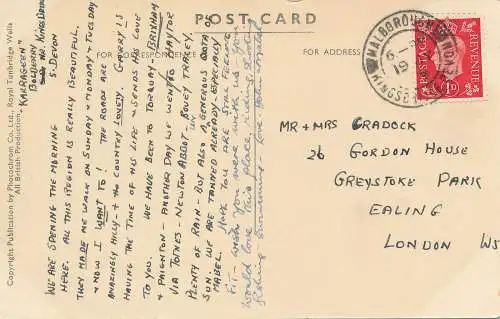 POST CARD
FOR ADDRESS
Copyright Publication by Photochrom Co., Ltd., Royal Tunbridge Wells
All British Production.
"KARRAGEEN"
BOLBERRY
NR. KINGSBRIDGE
S. DEVON
WE ARE SPENDING THE MORNING
HERE. ALL THIS REGION IS REALLY BEAUTIFUL.
THEY MADE ME WALK ON SUNDAY & MONDAY & TUESDAY
& NOW I WANT TO! THE ROADS ARE
AMAZINGLY HILLY & THE COUNTRY LOVELY. GARRY IS
HAVING THE TIME OF HIS LIFE & SENDS HIS LOVE
TO YOU. WE HAVE BEEN TO TORQUAY, BRIXHAM
& PAIGNTON - ANOTHER DAY WE WENT TO HAYTOR
VIA TOTNES - NEWTON ABBOT & BOVEY TRACEY.
PLENTY OF RAIN - BUT ALSO A GENEROUS QUOTA OF
SUN. WE ARE TANNED ALREADY.
MABEL.
Hope you are still feeling
fit - when you were
would love this place,
swimming - love
POSTAGE REVENUE
1D
MALBOROUGH
KINGSBRIDGE
MR & MRS CRADOCK
26 GORDON HOUSE
GREYSTOKE PARK
EALING
LONDON W5